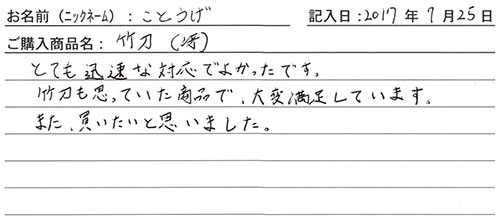 お名前（ニックネーム）：ことうげ 記入日：2017年7月25日
ご購入商品名：竹刀（冴）
とても迅速な対応でよかったです。
竹刀も思っていた商品で、大変満足しています。
また、買いたいと思いました。